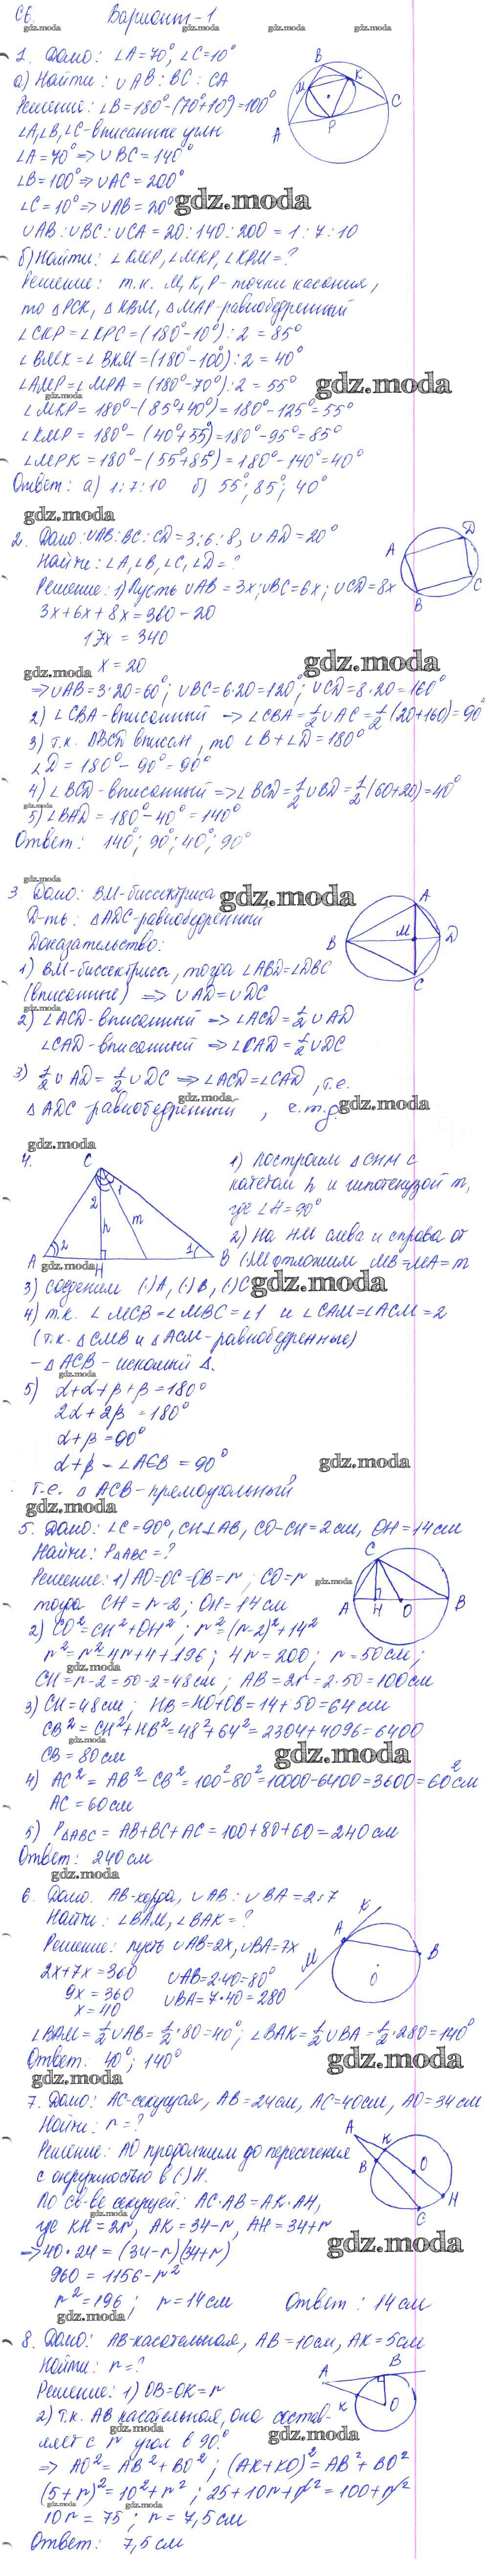 С6. Вариант-1
1. Дано: ∠A=70°, ∠C=10°
а) Найти: ∪AB : BC : CA
Решение: ∠B=180°-(70°+10°)=100°
∠A, ∠B, ∠C-вписанные углы
∠A=70° ⇒ ∪BC=140°
∠B=100° ⇒ ∪AC=200°
∠C=10° ⇒ ∪AB=20°
gdz.moda
∪AB : ∪BC : ∪CA = 20 : 140 : 200 = 1 : 7 : 10
б) Найти: ∠KMP, ∠MKP, ∠KPM=?
Решение: т.к. M, K, P - точки касания,
то △PCK, △KBM, △MAP-равнобедренный
∠CKP=∠KPC=(180°-10°):2=85°
∠BMK=∠BKM=(180°-100°):2=40°
∠AMP=∠MPA=(180°-70°):2=55°
gdz.moda
gdz.moda
∠MKP=180°-(85°+40°)=180°-125°=55°
∠KMP=180°-(40°+55°)=180°-95°=85°
∠MPK=180°-(55°+85°)=180°-140°=40°
Ответ: а) 1:7:10 б) 55°; 85°; 40°
gdz.moda
2. Дано: ∪AB:BC:CD=3:6:8, ∪AD=20°
Найти: ∠A, ∠B, ∠C, ∠D=?
Решение: 1) Пусть ∪AB=3x; ∪BC=6x; ∪CD=8x
3x+6x+8x=360-20
17x=340
x=20
gdz.moda
gdz.moda
⇒ ∪AB=3·20=60°; ∪BC=6·20=120°; ∪CD=8·20=160°
2) ∠CBA-вписанный ⇒ ∠CBA=1/2∪AC=1/2(20+160)=90°
3) т.к. ABCD вписан, то ∠B+∠D=180°
∠D=180°-90°=90°
4) ∠BCD-вписанный ⇒ ∠BCD=1/2∪BD=1/2(60+20)=40°
gdz.moda
5) ∠BAD=180°-40°=140°
Ответ: 140°; 90°; 40°; 90°
gdz.moda
3. Дано: BM-биссектриса
gdz.moda
Д-ть: △ADC-равнобедренный
Доказательство:
1) BM-биссектриса, тогда ∠ABD=∠DBC
(вписанные) ⇒ ∪AD=∪DC
gdz.moda
2) ∠ACD-вписанный ⇒ ∠ACD=1/2∪AD
∠CAD-вписанный ⇒ ∠CAD=1/2∪DC
3) 1/2∪AD=1/2∪DC ⇒ ∠ACD=∠CAD, т.е.
gdz.moda
△ADC-равнобедренный, ч.т.д.
gdz.moda
gdz.moda
4.
1) Построим △CHM с
катетом h и гипотенузой m,
где ∠H=90°
2) На HM слева и справа от
(·)M отложим MB=MA=m
gdz.moda
3) Соединим (·)A, (·)B, (·)C
gdz.moda
4) т.к. ∠MCB=∠MBC=∠1 и ∠CAM=∠ACM=2
(т.к. △CMB и △ACM-равнобедренные)
-△ACB-искомый △.
gdz.moda
5) α+α+β+β=180°
2α+2β=180°
α+β=90°
α+β-∠ACB=90°
gdz.moda
т.е. △ACB-прямоугольный
gdz.moda
5. Дано: ∠C=90°, CH⊥AB, CO-CH=2см, OH=14см
Найти: P△ABC=?
Решение: 1) AO=OC=OB=r; CO=r
gdz.moda
тогда CH=r-2; OH=14см
2) CO²=CH²+OH²; r²=(r-2)²+14²
r²=r²-4r+4+196; 4r=200; r=50см;
gdz.moda
CH=r-2=50-2=48см; AB=2r=2·50=100см
3) CH=48см; HB=HO+OB=14+50=64см
CB²=CH²+HB²=48²+64²=2304+4096=6400
gdz.moda
CB=80см
gdz.moda
4) AC²=AB²-CB²=100²-80²=10000-6400=3600=60²см
AC=60см
5) P△ABC=AB+BC+AC=100+80+60=240см
Ответ: 240см
gdz.moda
6. Дано: AB-хорда, ∪AB:∪BA=2:7
Найти: ∠BAM, ∠BAK=?
Решение: пусть ∪AB=2x, ∪BA=7x
2x+7x=360 ∪AB=2·40=80°
9x=360 ∪BA=7·40=280
x=40
∠BAM=1/2∪AB=1/2·80=40°; ∠BAK=1/2∪BA=1/2·280=140°
Ответ. 40°; 140°
gdz.moda
gdz.moda
7. Дано: AC-секущая, AB=24см, AC=40см, AO=34см
Найти: r=?
Решение: AO продолжим до пересечения
с окружностью в (·)H.
По св-ве секущей: AC·AB=AK·AH,
gdz.moda
где KH=2r, AK=34-r, AH=34+r
gdz.moda
⇒ 40·24=(34-r)(34+r)
960=1156-r²
r²=196; r=14см Ответ: 14см
gdz.moda
8. Дано: AB-касательная, AB=10см, AK=5см
Найти: r=?
Решение: 1) OB=OK=r
2) т.к. AB касательная, она состав-
gdz.moda
ляет с r угол в 90°
gdz.moda
⇒ AO²=AB²+BO²; (AK+KO)²=AB²+BO²
(5+r)²=10²+r²; 25+10r+r²=100+r²
gdz.moda
gdz.moda
10r=75; r=7,5см
Ответ: 7,5см